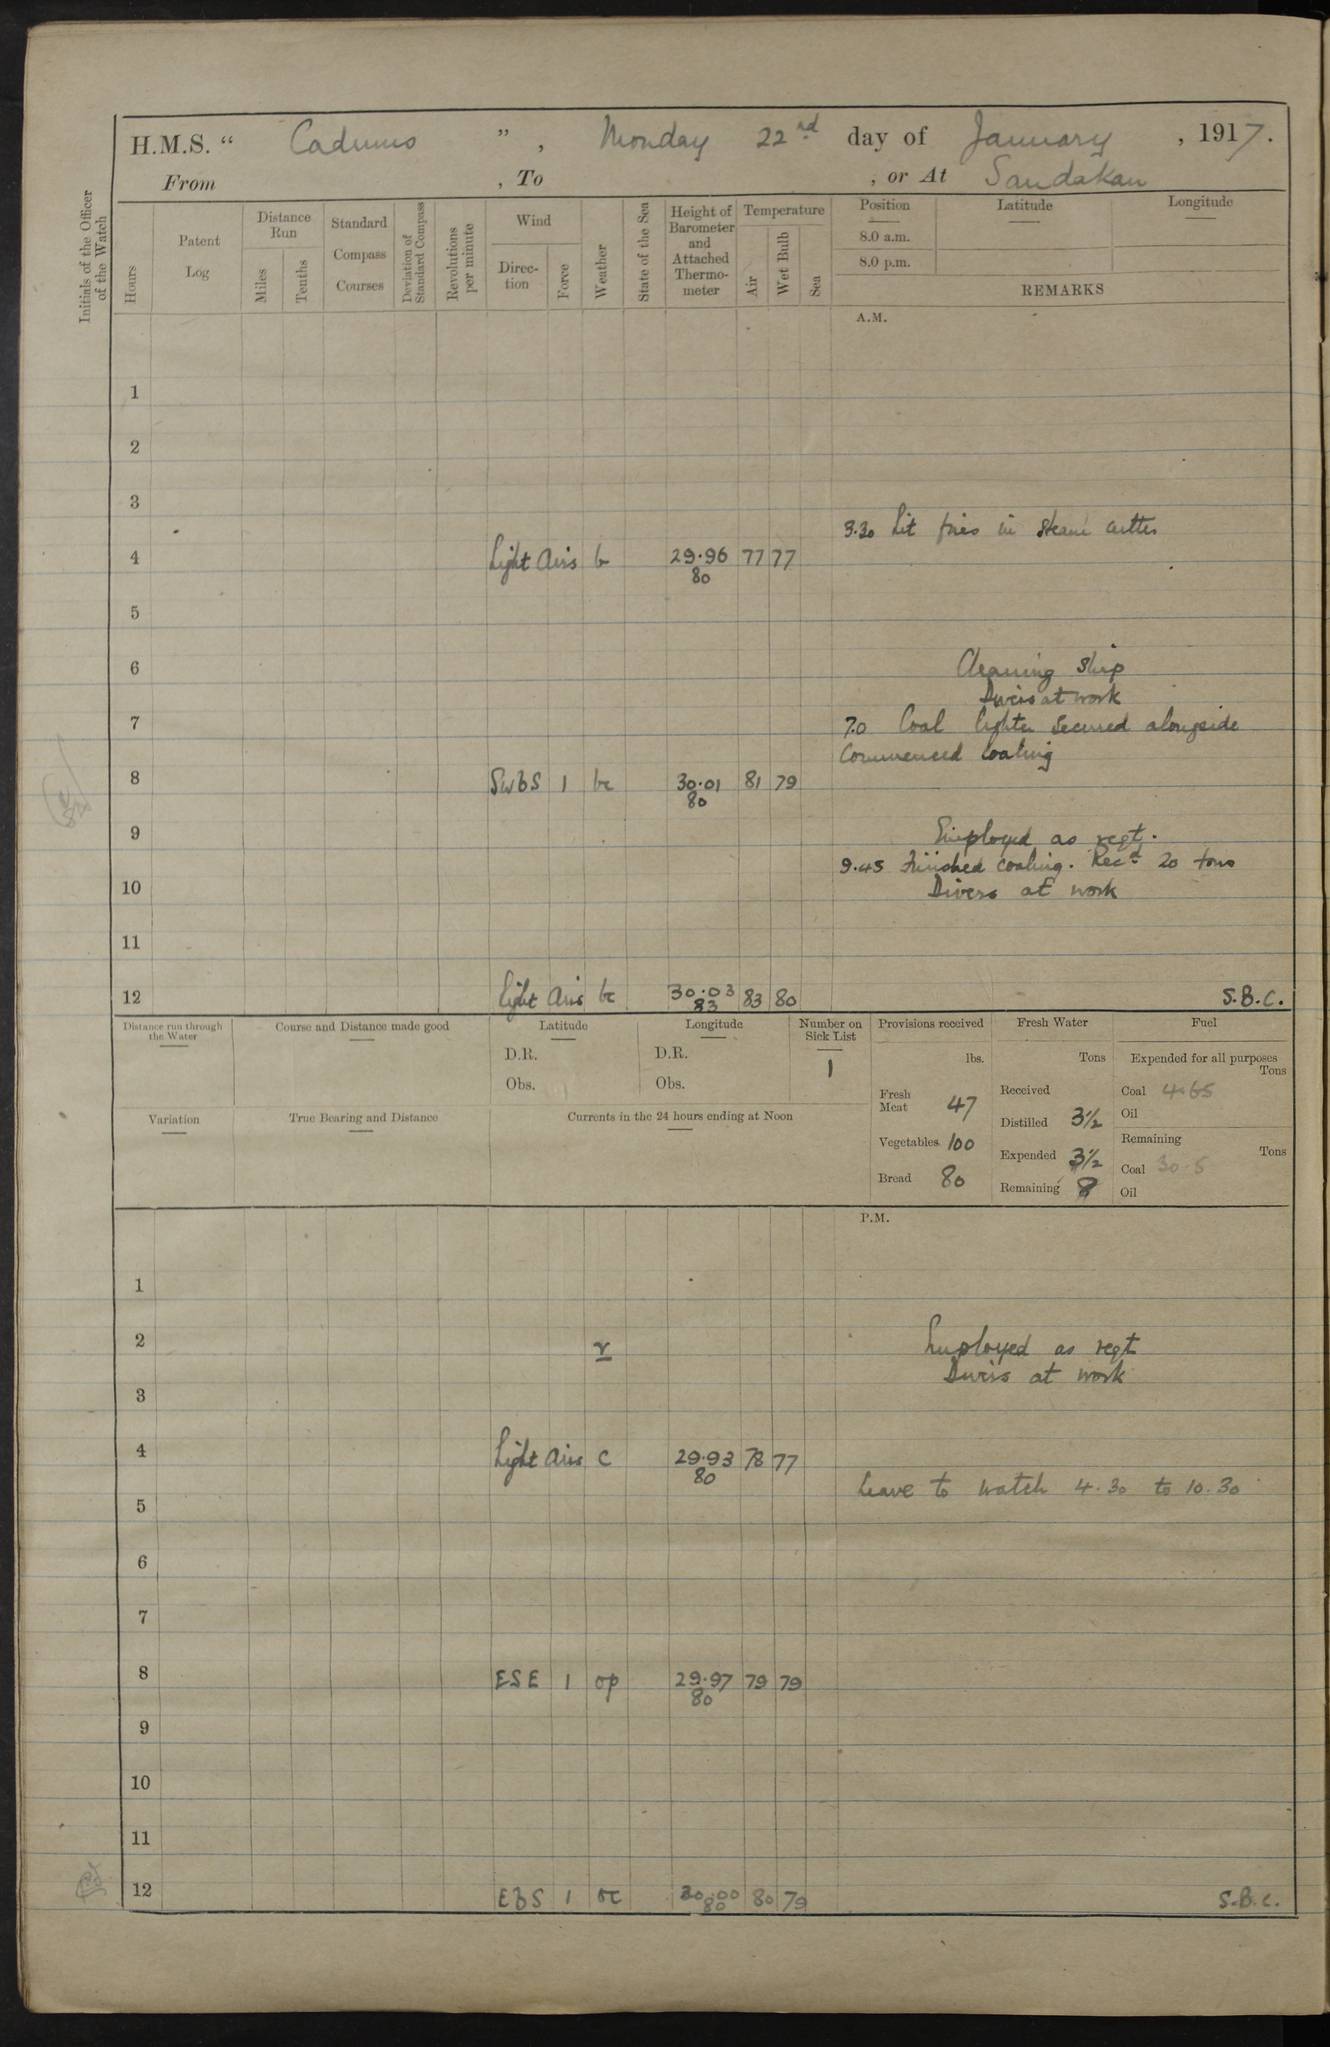 H.M.S. " Cadmus ", Monday 22nd day of January, 1917.
From , To , or At Sandakan
Initials of the Officer of the Watch
Hours
Patent Log
Distance Run
Miles
Tenths
Standard Compass Courses
Deviation of Standard Compass
Revolutions per minute
Wind
Direc-tion
Force
Weather
State of the Sea
Height of Barometer and Attached Thermo-meter
Temperature
Air
Wet Bulb
Sea
Position
Latitude
Longitude
8.0 a.m.
8.0 p.m.
REMARKS
A.M.
1
2
3
3.30 Lit fires in steam cutter
4 Light Airs b 29.96 77 77
80
5
6 Cleaning Ship
Divers at work
7 7.0 Coal lighter secured alongside
Commenced coaling
8 SWbS 1 bc 30.01 81 79
80
9 Employed as reqt.
9.45 Finished coaling. Recd 20 tons
10 Divers at work
11
12 Light Airs bc 30.03 83 80 S.B.C.
83
Distance run through the Water
Course and Distance made good
Latitude
D.R.
Obs.
Longitude
D.R.
Obs.
Number on Sick List
1
Provisions received
lbs.
Fresh Meat 47
Vegetables 100
Bread 80
Fresh Water
Tons
Received
Distilled 3½
Expended 3½
Remaining 8
Fuel
Expended for all purposes
Tons
Coal 4.65
Oil
Remaining
Tons
Coal 30.5
Oil
Variation
True Bearing and Distance
Currents in the 24 hours ending at Noon
P.M.
1
2 r Employed as reqt
Divers at work
3
4 Light Airs c 29.93 78 77
80
Leave to watch 4.30 to 10.30
5
6
7
8 ESE 1 op 29.97 79 79
80
9
10
11
12 EbS 1 oc 30.00 80 79 S.B.C.
80